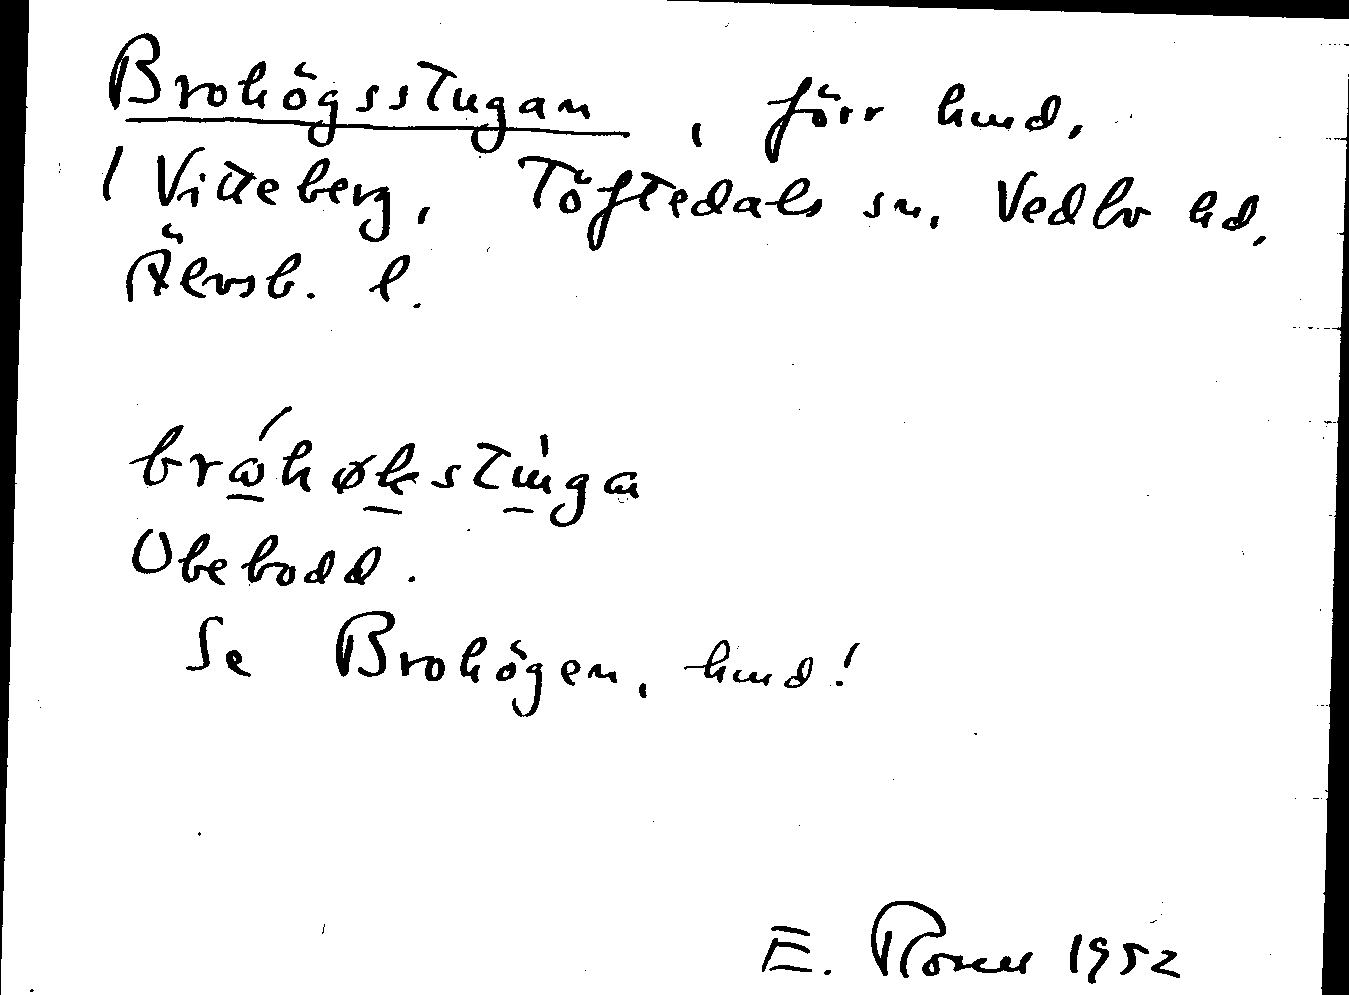 Brohögsstugan, förr hmd,
/ Vitteberg, Töftedals sn, Vedbo hd,
Älvsb. l.
bråhøkstuga
Obebodd.
Se Brohögen, hmd!
E. Rosell 1952